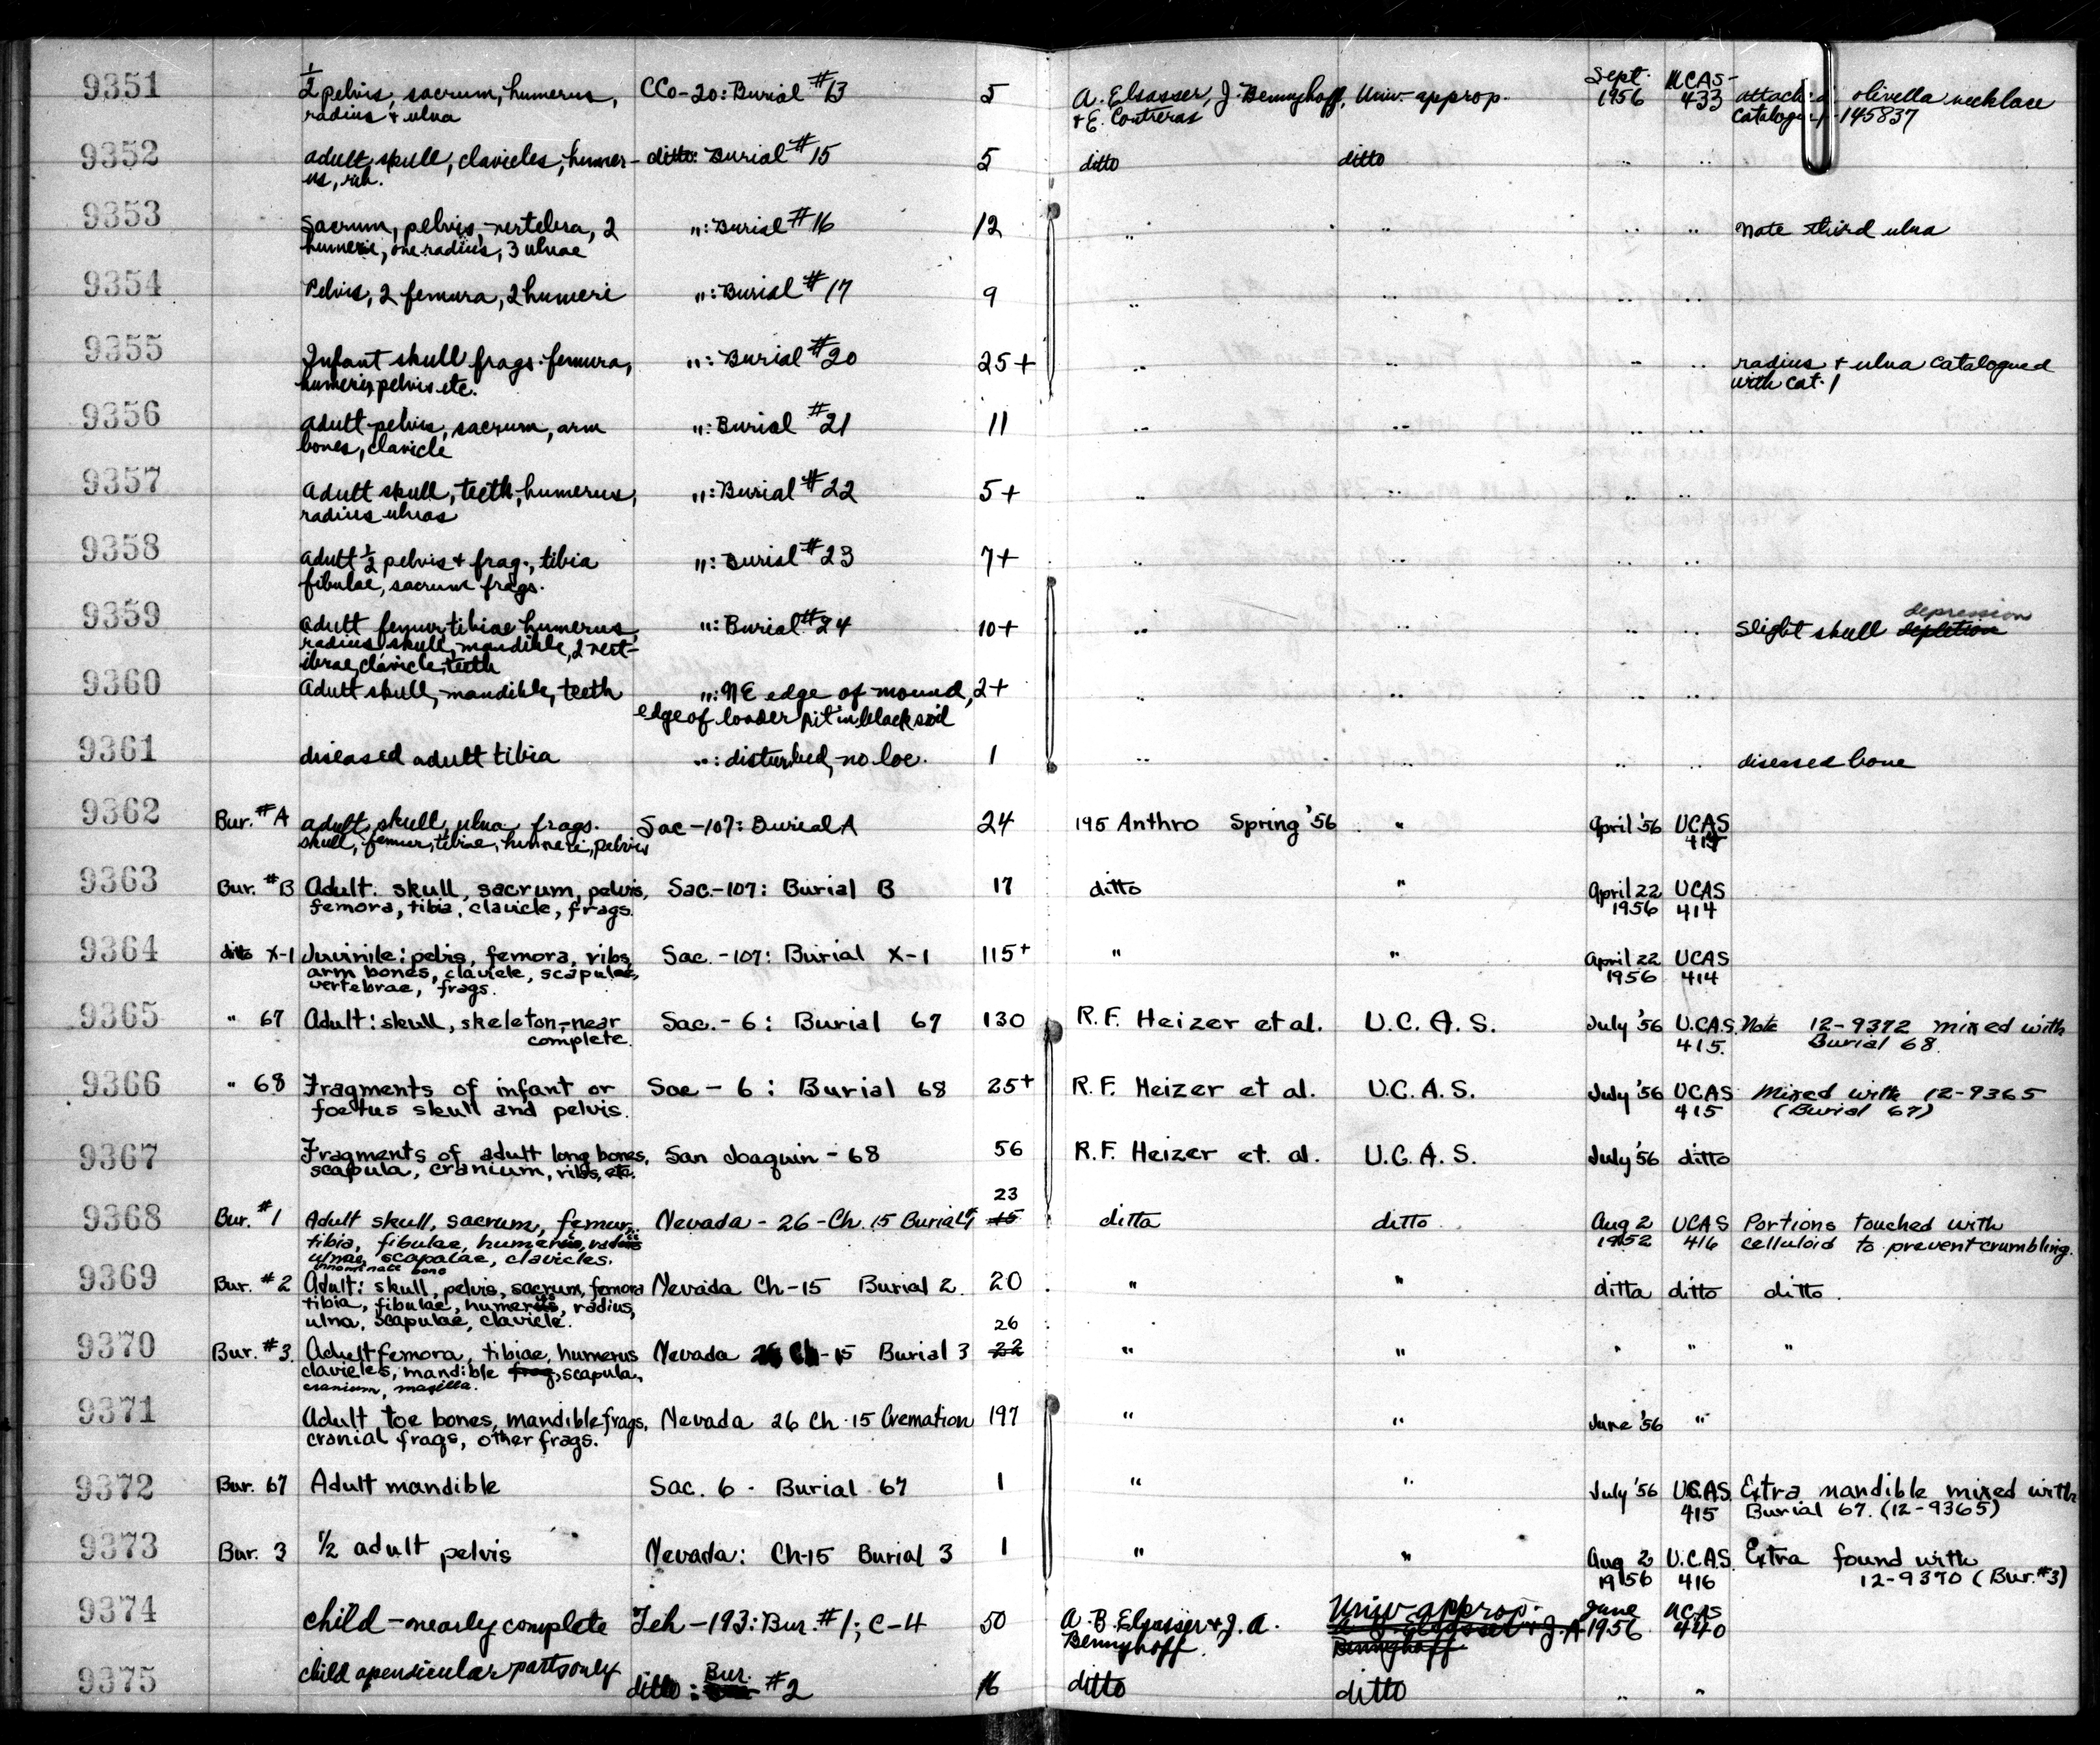 9351 ½ pelvis, sacrum, humerus, CCo-20: Burial #13 5 A. Elsasser, J. Bennyhoff, Univ. approp. Sept. 1956 UCAS-433 attached olivella necklace
radius & ulna & E. Contreras catalogued 1-145837
9352 adult skull, clavicles, humer- ditto: Burial #15 5 ditto ditto " "
us, rib.
9353 Sacrum, pelvis, vertebra, 2 ": Burial #16 12 " " " " note third ulna
humeri, one radius, 3 ulnae
9354 Pelvis, 2 femura, 2 humeri ": Burial #17 9 " " " "
9355 Infant skull frags. femura, ": Burial #20 25+ " " " " radius & ulna catalogued
humeri, pelvis etc. with cat. 1
9356 adult pelvis, sacrum, arm ": Burial #21 11 " " " "
bones, clavicle
9357 Adult skull, teeth, humerus, ": Burial #22 5+ " " " "
radius ulnas
9358 adult ½ pelvis & frag., tibia ": Burial #23 7+ " " " "
fibulae, sacrum frags.
9359 adult femur tibiae humerus, ": Burial #24 10+ " " " " slight skull depletion depression
radius, skull, mandible, 2 vert-
ibrae, clavicle, teeth
9360 Adult skull, mandible, teeth ": NE edge of mound, 2+ " " " "
edge of loader pit in black soil
9361 diseased adult tibia ": disturbed, no loc. 1 " " " " diseased bone
9362 Bur. #A adult skull, ulna frags. Sac-107: Burial A 24 195 Anthro Spring '56 " April '56 UCAS
skull, femur, tibiae, humeri, pelvis
9363 Bur. #B Adult: skull, sacrum, pelvis, Sac.-107: Burial B 17 ditto " April 22 UCAS
femora, tibia, clavicle, frags. 1956 414
9364 ditto X-1 Juvinile: pelvis, femora, ribs, Sac.-107: Burial X-1 115+ " " April 22 UCAS
arm bones, clavicle, scapulae, 1956 414
vertebrae, frags.
9365 " 67 Adult: skull, skeleton, near Sac.-6: Burial 67 130 R.F. Heizer et al. U.C.A.S. July '56 U.CAS. Note 12-9372 mixed with
complete. 415. Burial 68.
9366 " 68 Fragments of infant or Sac-6: Burial 68 25+ R.F. Heizer et al. U.C.A.S. July '56 UCAS Mixed with 12-9365
foetus skull and pelvis. 415 (Burial 67)
9367 Fragments of adult long bones, San Joaquin-68 56 R.F. Heizer et. al. U.C.A.S. July '56 ditto
scapula, cranium, ribs, etc.
23
9368 Bur. #1 Adult skull, sacrum, femur, Nevada-26-Ch. 15 Burial 1 15 ditto ditto Aug 2 UCAS Portions touched with
tibia, fibulae, humerus, radius 1952 416 celluloid to prevent crumbling.
ulnae, scapalae, clavicles.
innominate bone
9369 Bur. #2 Adult: skull, pelvis, sacrum, femora Nevada Ch-15 Burial 2. 20 " " ditto ditto ditto
tibia, fibulae, humerus, radius,
ulna, scapulae, clavicle.
26
9370 Bur. #3. Adult femora, tibiae, humerus Nevada 26 Ch-15 Burial 3 22 " " " " "
clavicles, mandible frag, scapula,
cranium, maxilla.
9371 Adult toe bones, mandible frags, Nevada 26 Ch. 15 Cremation 197 " " June '56 "
cranial frags, other frags.
9372 Bur. 67 Adult mandible Sac. 6 - Burial 67 1 " " July '56 UCAS Extra mandible mixed with
415 Burial 67. (12-9365)
9373 Bur. 3 ½ adult pelvis Nevada: Ch-15 Burial 3 1 " " Aug 2 U.C.A.S. Extra found with
1956 416 12-9370 (Bur. #3)
9374 child - nearly complete Teh-193: Bur. #1; C-4 50 A. B. Elsasser & J. A. Univ approp. June UCAS
Bennyhoff. A. B. Elsasser & J. A. Bennyhoff 1956 440
9375 child apendicular parts only ditto: Bur. #2 16 ditto ditto " "